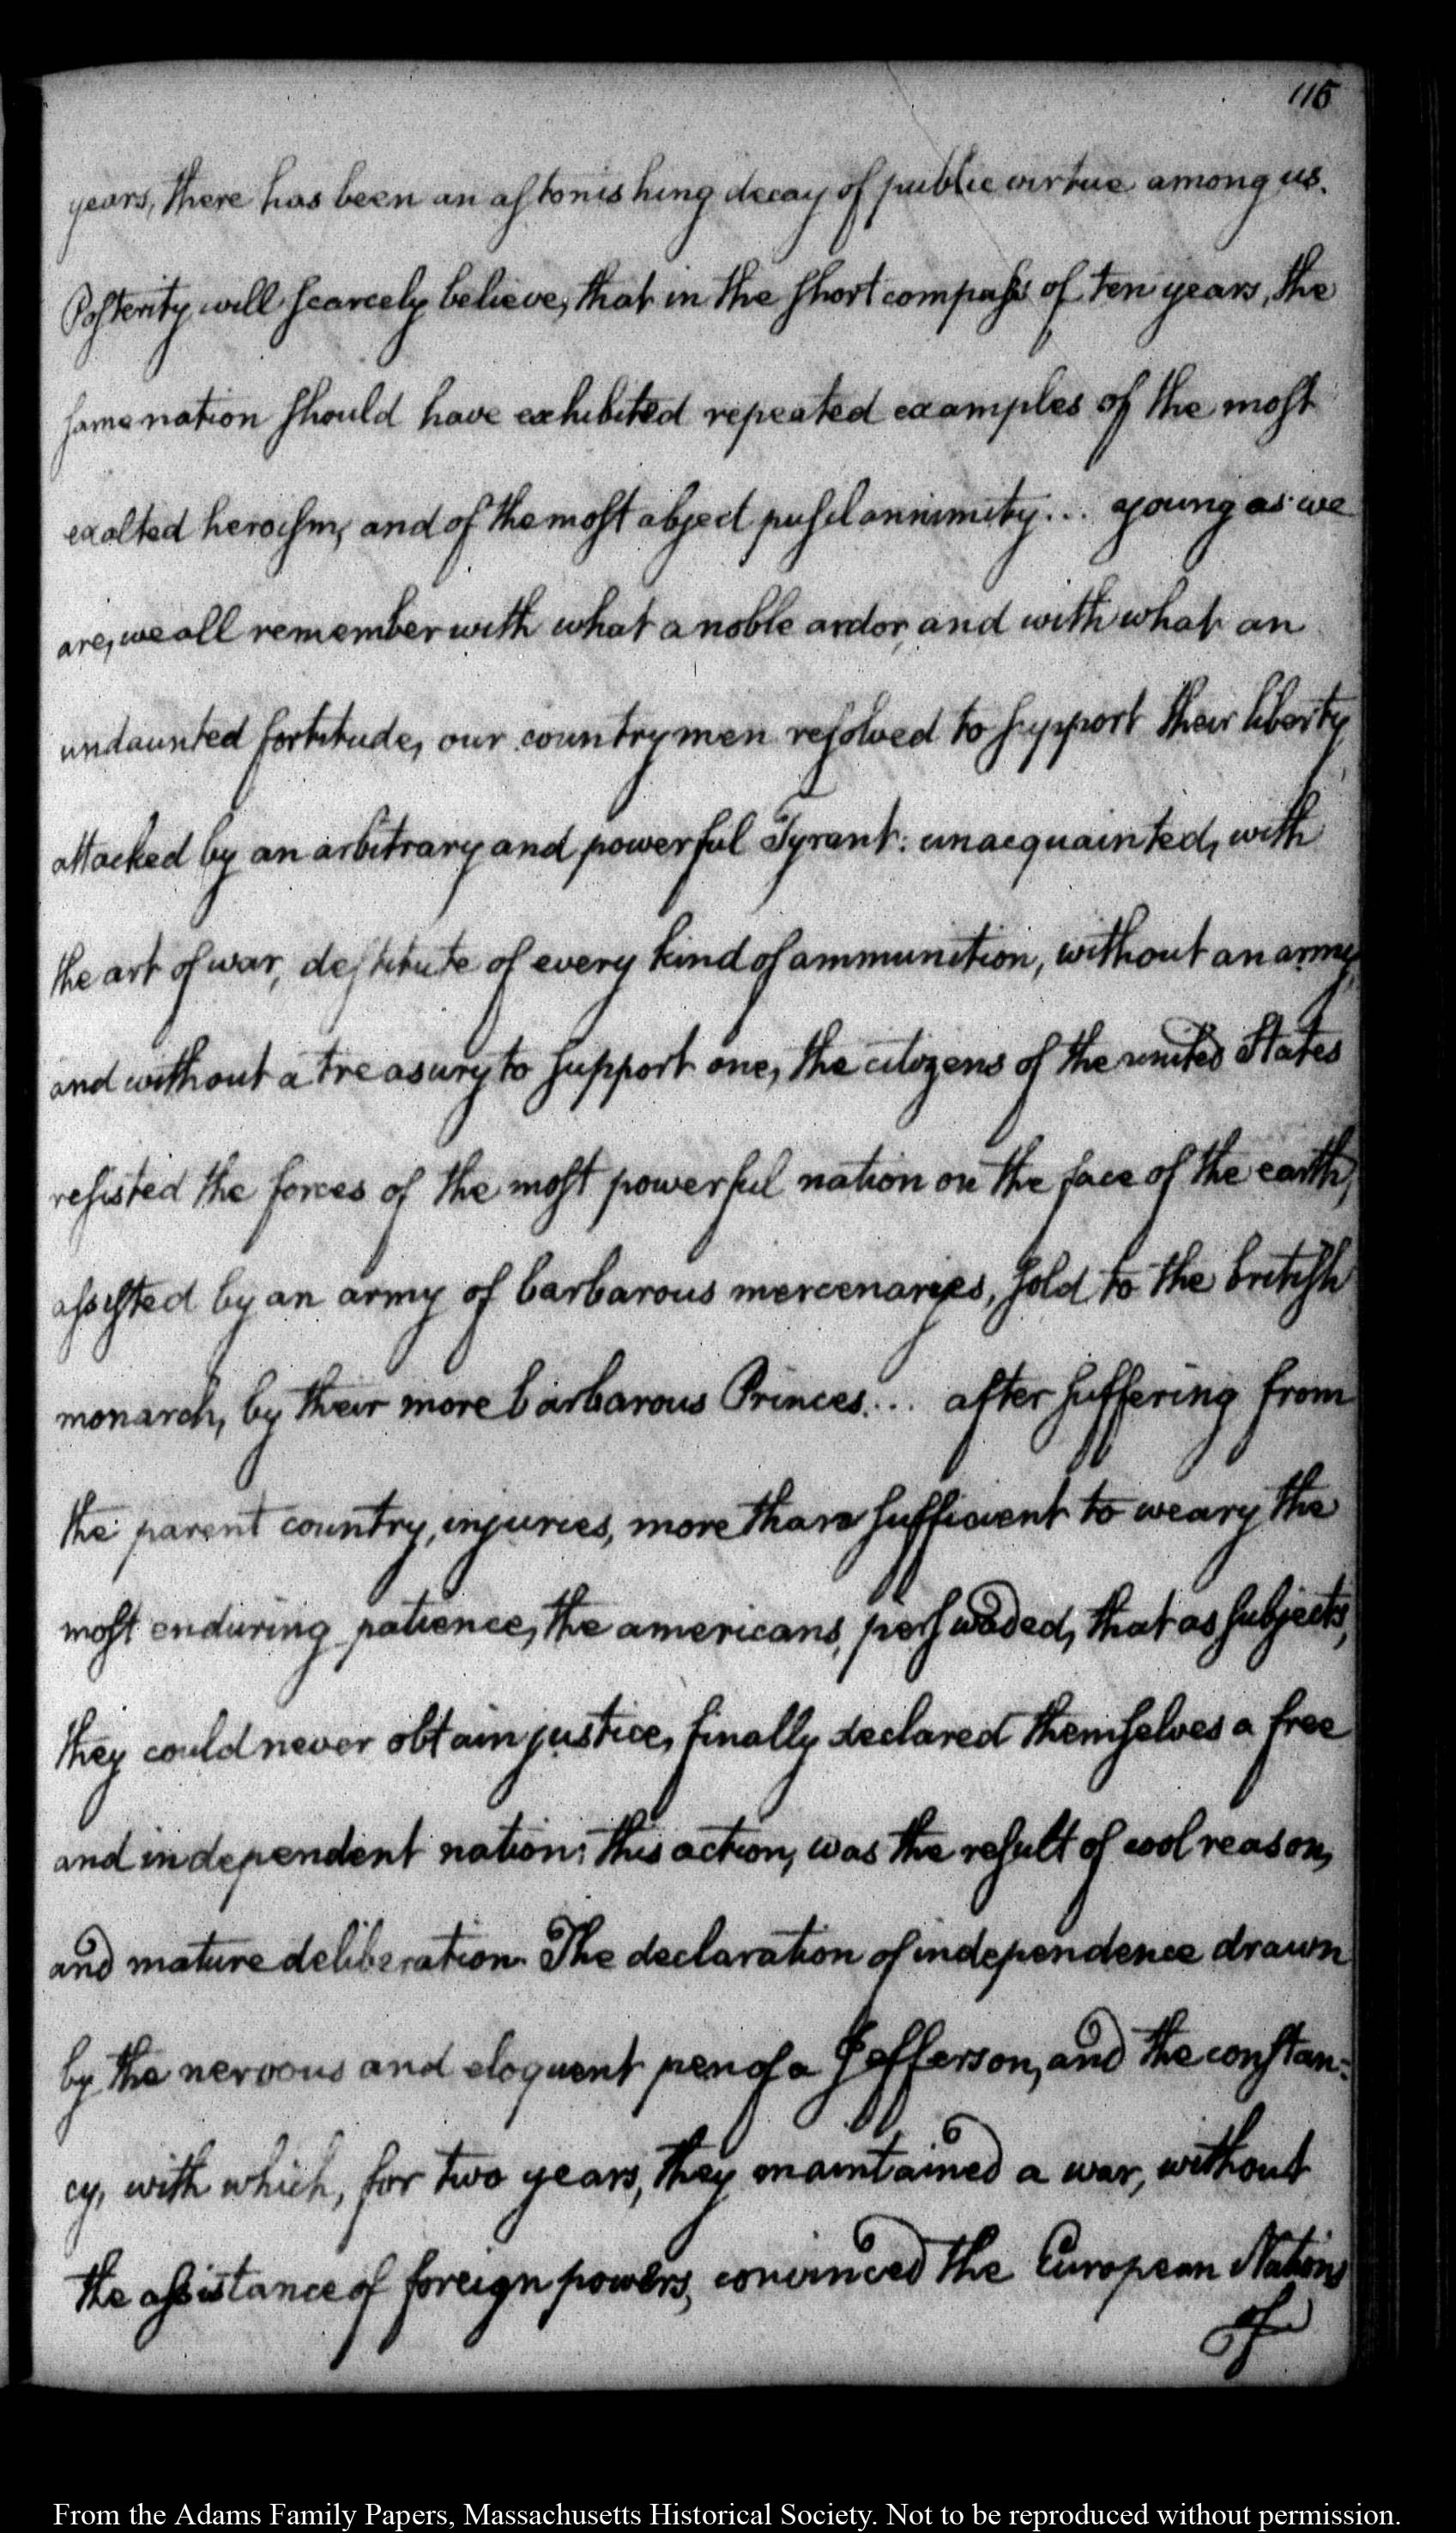 115
years, there has been an astonishing decay of public virtue among us.
Posterity will scarcely believe, that in the short compass of ten years, the
same nation should have exhibited repeated examples of the most
exalted heroism, and of the most abject pusilannimity... young as we
are, we all remember with what a noble ardor, and with what an
undaunted fortitude, our countrymen resolved to support their liberty
attacked by an arbitrary and powerful Tyrant: unacquainted, with
the art of war, destitute of every kind of ammunition, without an army,
and without a treasury to support one, the citizens of the united States
resisted the forces of the most powerful nation on the face of the earth,
assisted by an army of barbarous mercenaries, sold to the british
monarch, by their more barbarous Princes... after suffering from
the parent country, injuries, more than sufficient to weary the
most enduring patience, the americans, perswaded, that as subjects,
they could never obtain justice, finally declared themselves a free
and independent nation: this action, was the result of cool reason,
and mature deliberation. The declaration of independence drawn
by the nervous and eloquent pen of a Jefferson, and the constan:
cy, with which, for two years, they maintained a war, without
the assistance of foreign powers, convinced the European Nations
of
From the Adams Family Papers, Massachusetts Historical Society. Not to be reproduced without permission.